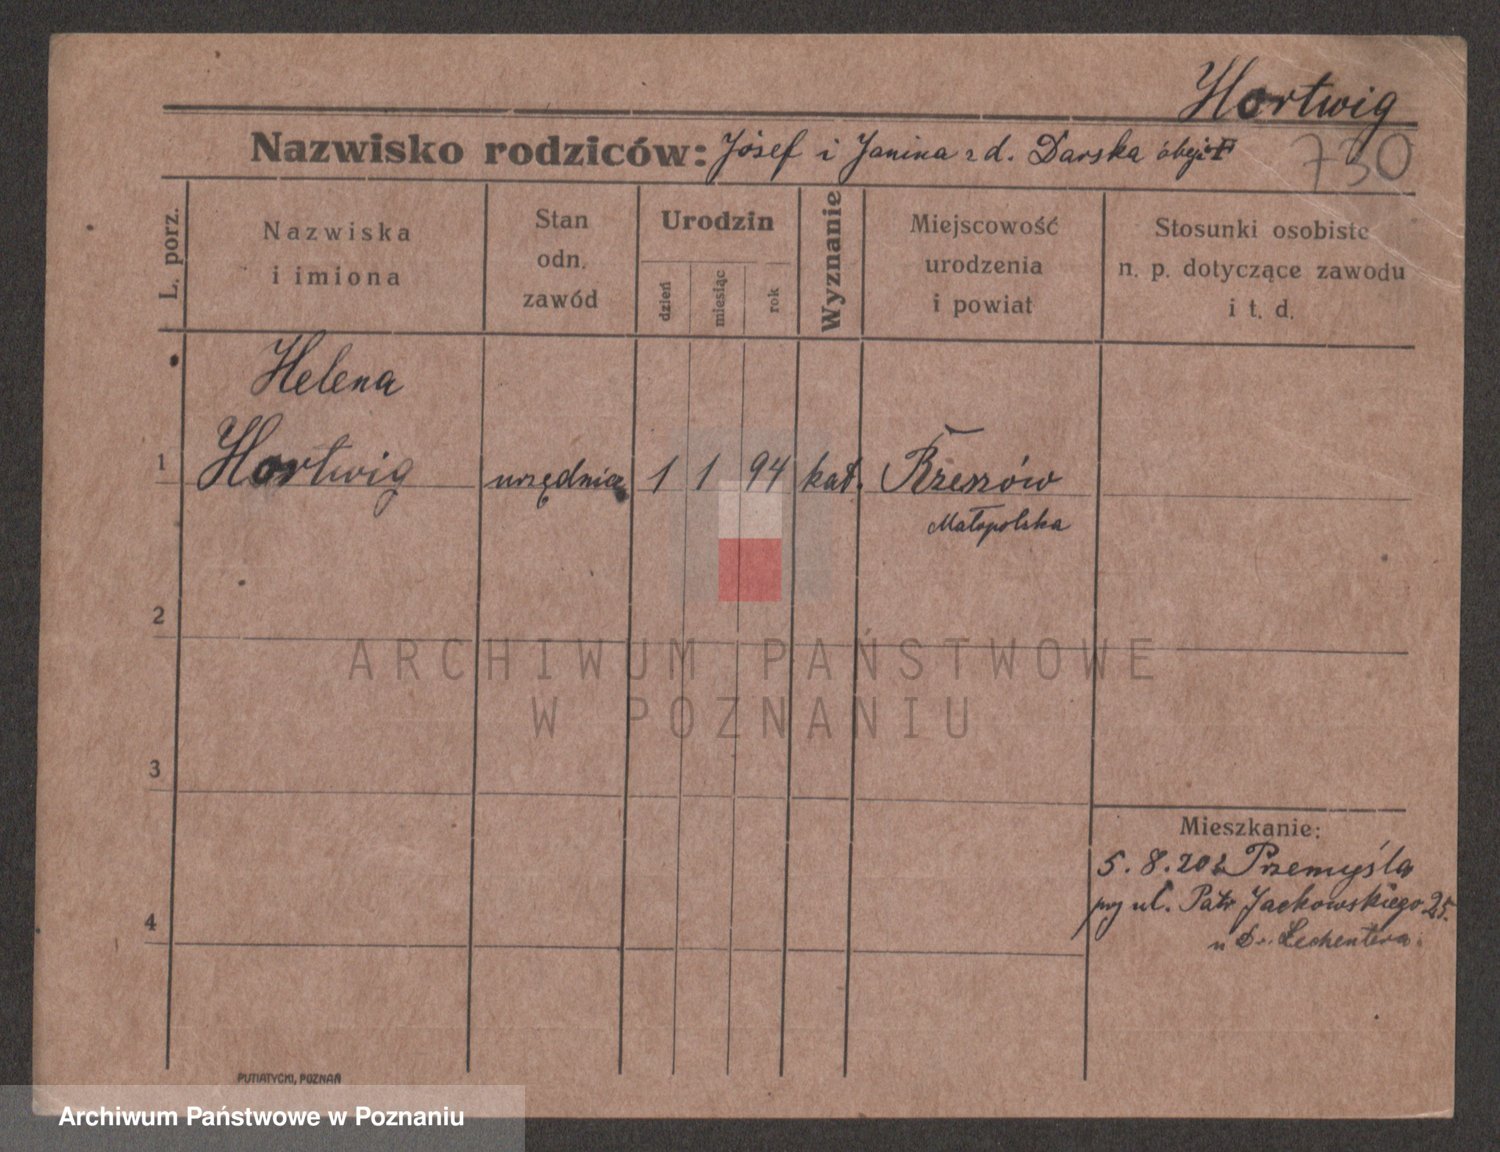 Hortwig
730
Nazwisko rodziców: Józef i Janina z d. Darska obeje
L. porz.
Nazwiska
i imiona
Stan
odn.
zawód
Urodzin
dzień
miesiąc
rok
Wyznanie
Miejscowość
urodzenia
i powiat
Stosunki osobiste
n. p. dotyczące zawodu
i t. d.
Helena
1 Hortwig urzędnicz 1 1 94 kat. Rzeszów
Małopolska
2
ARCHIWUM PAŃSTWOWE
W POZNANIU
3
Mieszkanie:
5.8.20 z Przemyśla
przy ul. Patr Jackowskiego 25.
4
u Dr. Lechentera.
PUTIATYCKI, POZNAŃ
Archiwum Państwowe w Poznaniu